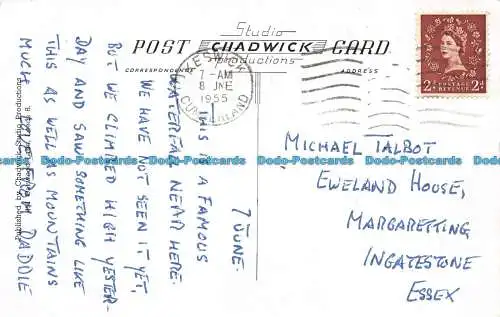 Studio
POST CHADWICK CARD
Productions
CORRESPONDENCE
ADDRESS
KESWICK
7 - AM
8 JNE
1955
CUMBERLAND
2d 2d
POSTAGE
REVENUE
7 JUNE.
THIS IS A FAMOUS
WATERFALL NEAR HERE.
WE HAVE NOT SEEN IT YET,
BUT WE CLIMBED HIGH YESTER-
DAY AND SAW SOMETHING LIKE
THIS AS WELL AS MOUNTAINS
MUCH
DADDIE
MICHAEL TALBOT
EWELAND HOUSE,
MARGARETTING
INGATESTONE
ESSEX
Published by Chadwick Studio Productions
Do-Do-Postcards Do-Do-Postcards Do-Do-Postcards Do-Do-Postcards Do-Do-Postcards